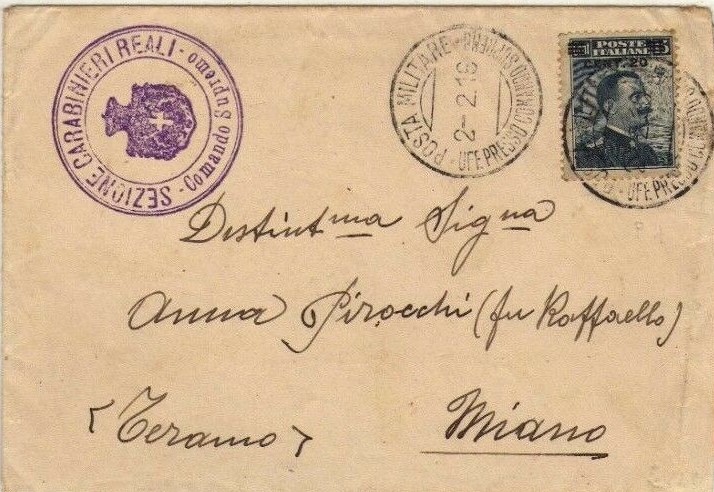 SEZIONE CARABINIERI REALI - Comando Supremo -
POSTA MILITARE - UFF. PRESSO COMANDO SUPREMO
2 - 2.18
POSTE
ITALIANE
20
UFF. PRESSO
Distintma Signa
Anna Pirocchi (fu Raffaello)
<Teramo> Miano